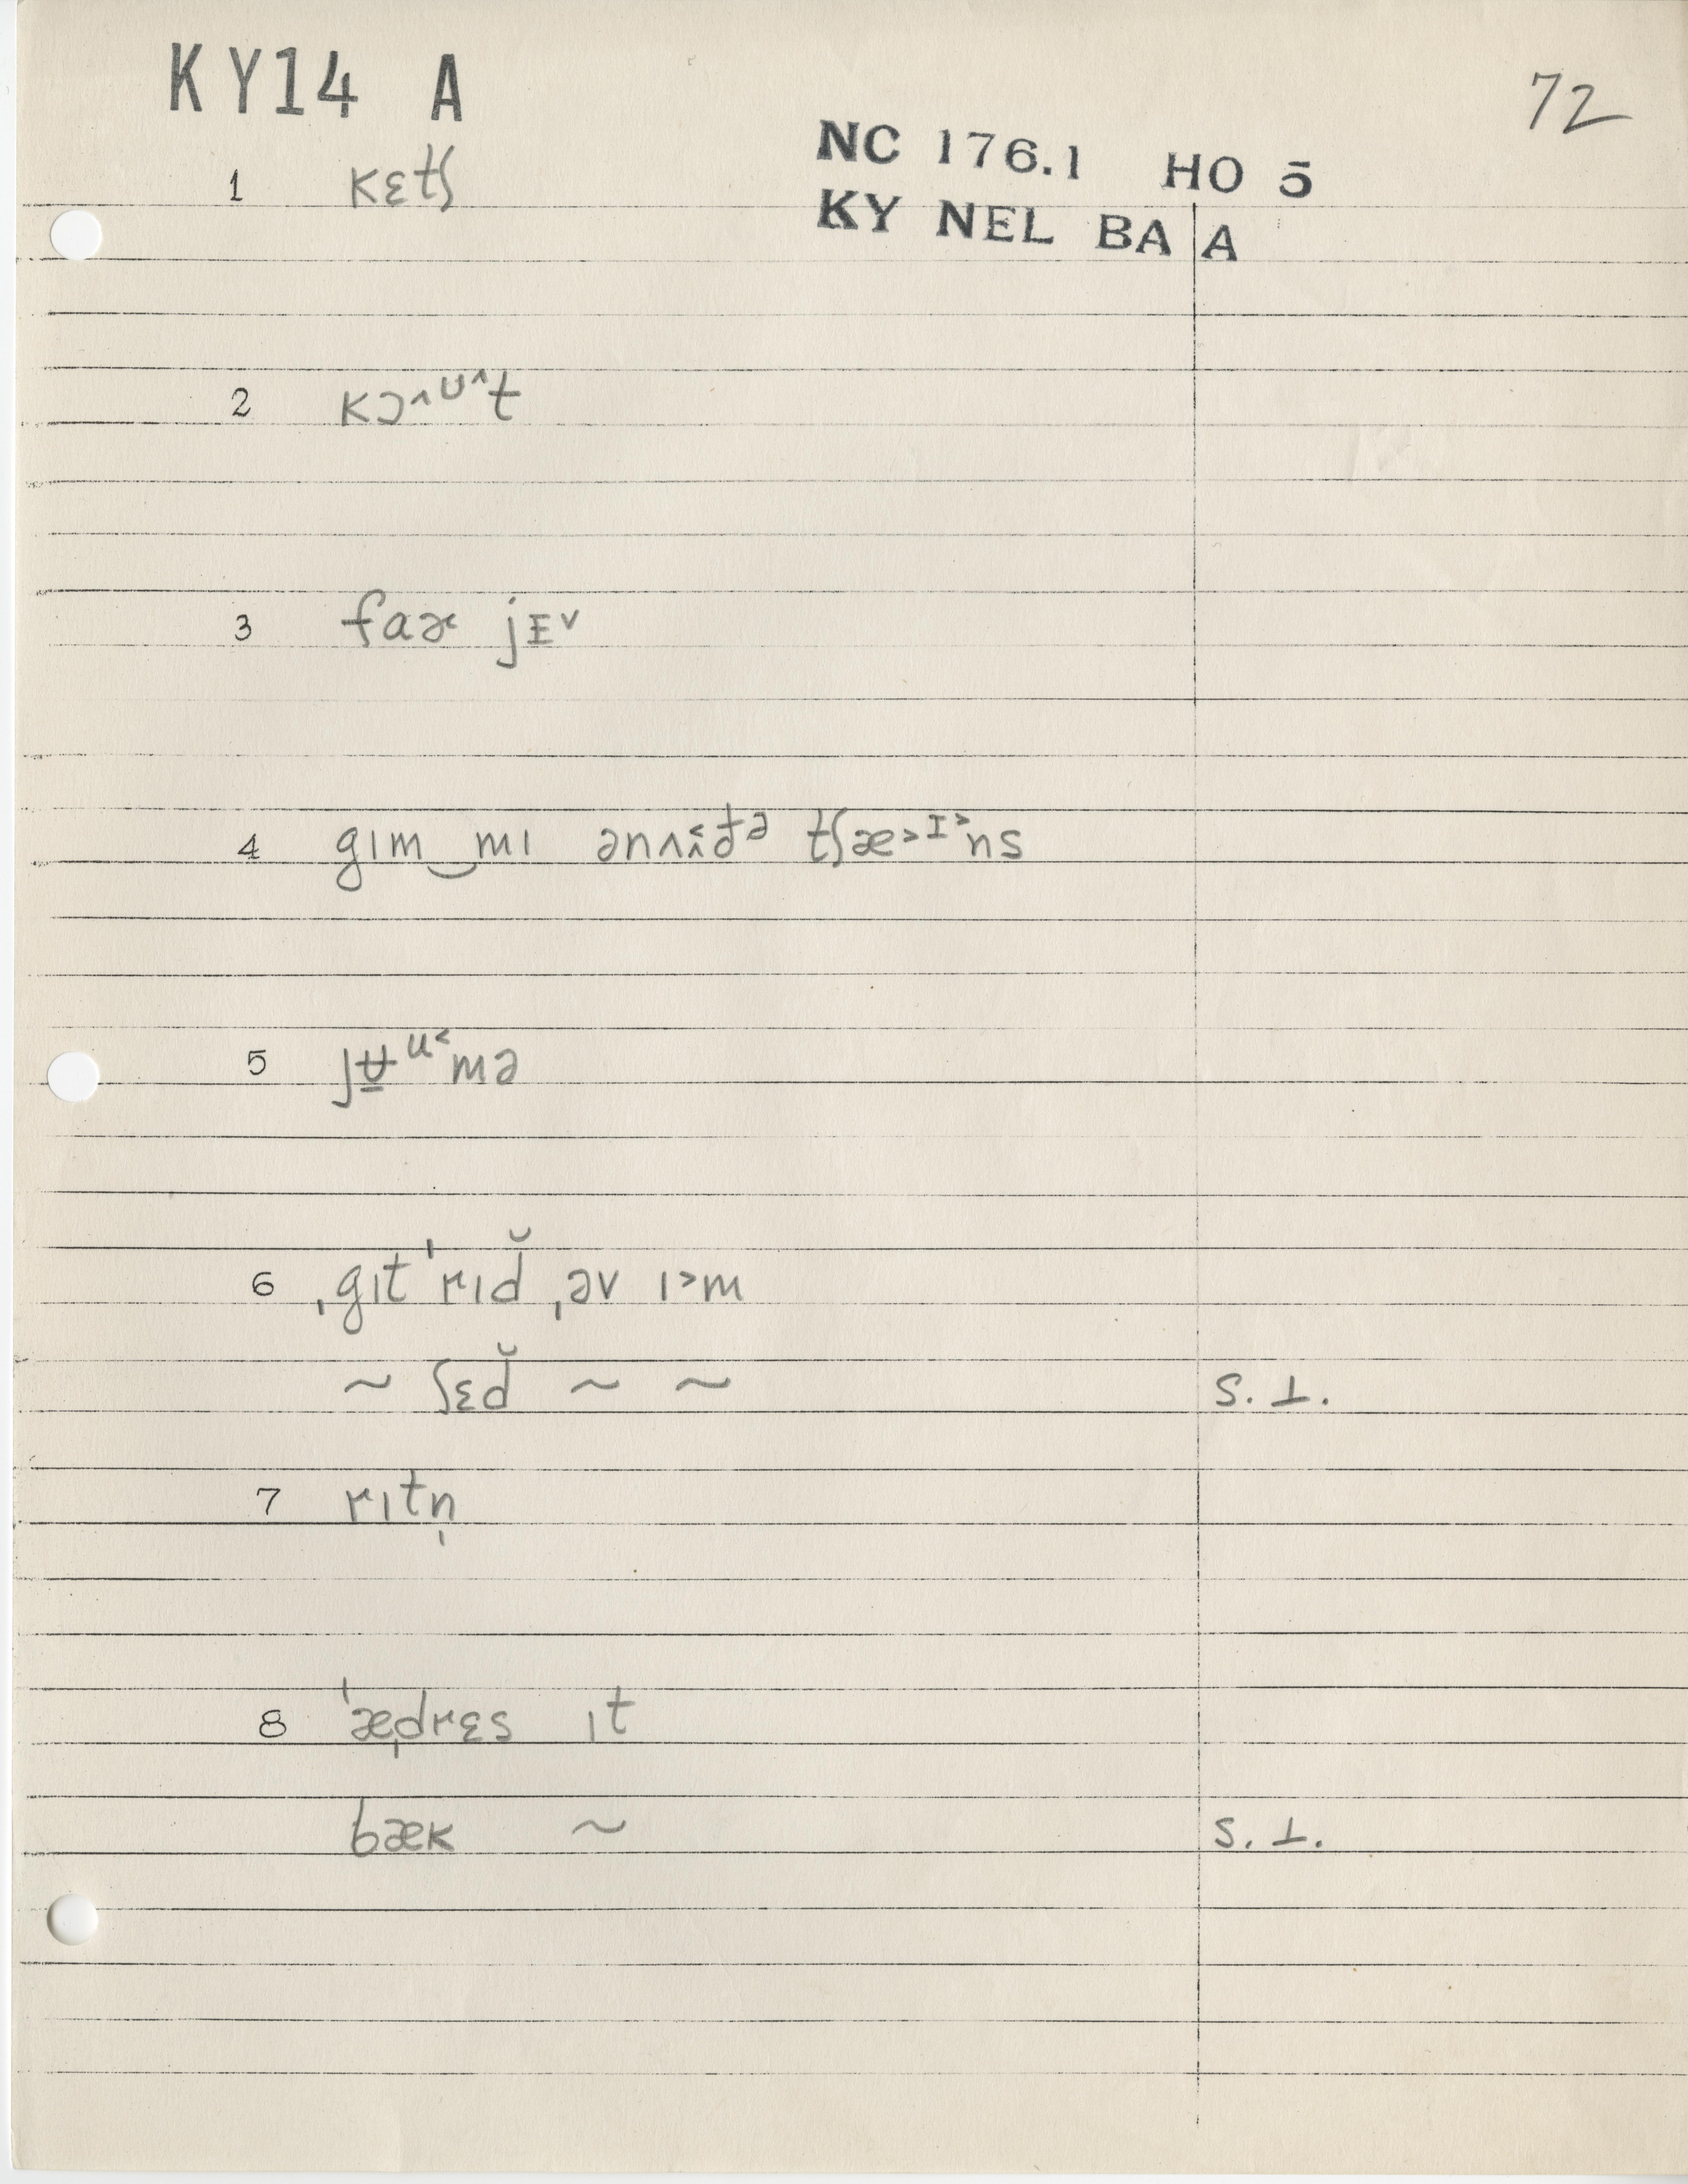 KY14 A
72
NC 176.1 HO 5
KY NEL BA A
1 kɛtʃ
2 kɔ^ᴜ^t
3 faɚ jᴇ˅
4 gɪm‿mɪ ənʌɪ̂˂ðə tʃæ˃ᴵ˃ns
5 jʉ̱ᵘ˂mə
6 ˌgɪt ˈrɪd̆ ˌəv ɪ˃m
~ ʃɛd̆ ~ ~ S. I.
7 rɪtn̩
8 ˈæˌdrɛs ɪt
bæk ~ S. I.